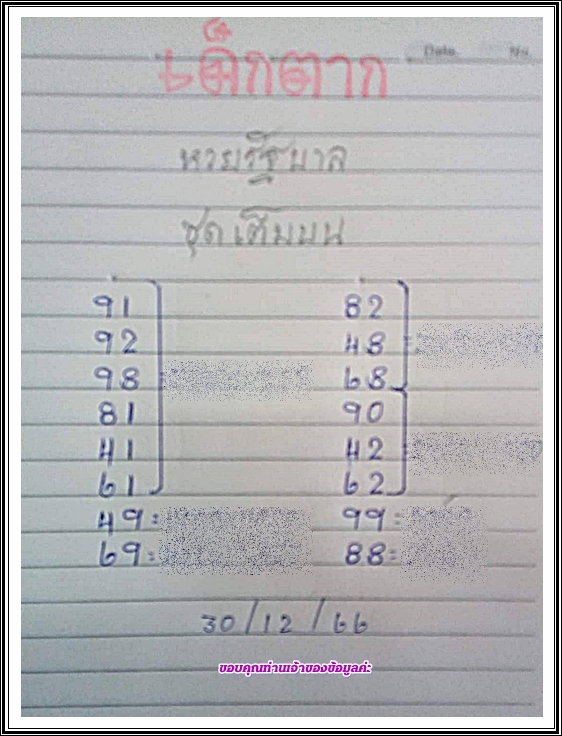 Date. No.
เด็กตาก
หวยรัฐบาล
ชุดเต็มบน
91
92
98
81
41
61
49 =
69 =
82
48
68
90
42
62
99 =
88 =
30/12/66
ขอบคุณท่านเจ้าของข้อมูลค่ะ